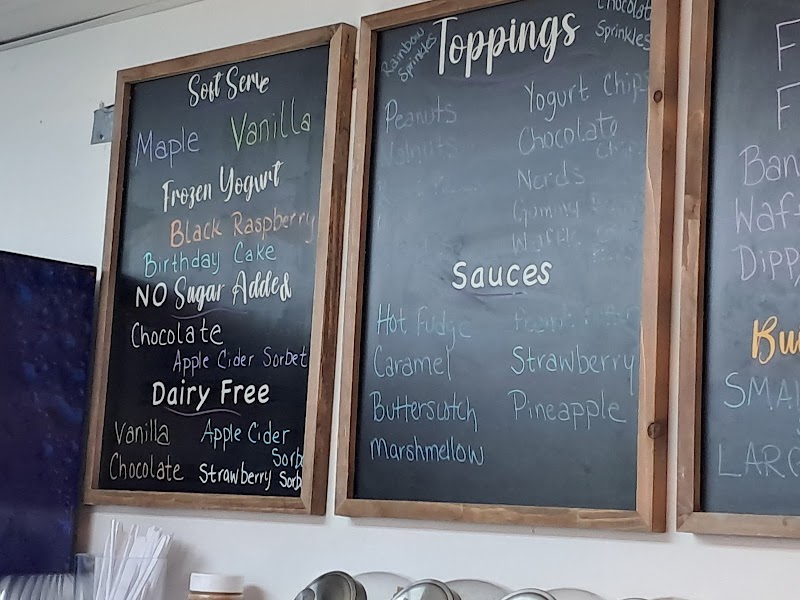 Soft Serve
Maple Vanilla
Frozen Yogurt
Black Raspberry
Birthday Cake
NO Sugar Added
Chocolate
Apple Cider Sorbet
Dairy Free
Vanilla Apple Cider
Sorb
Chocolate Strawberry Sorb
Rainbow
Sprinkles
Toppings
Chocolat
Sprinkles
Peanuts Yogurt Chips
Walnuts Chocolate
Chips
Nerds
Gummy
Waffle
Sauces
Hot Fudge Peanut Butter
Caramel Strawberry
Butterscotch Pineapple
Marshmellow
F
F
Ban
Waff
Dipp
Bu
SMA
LARG